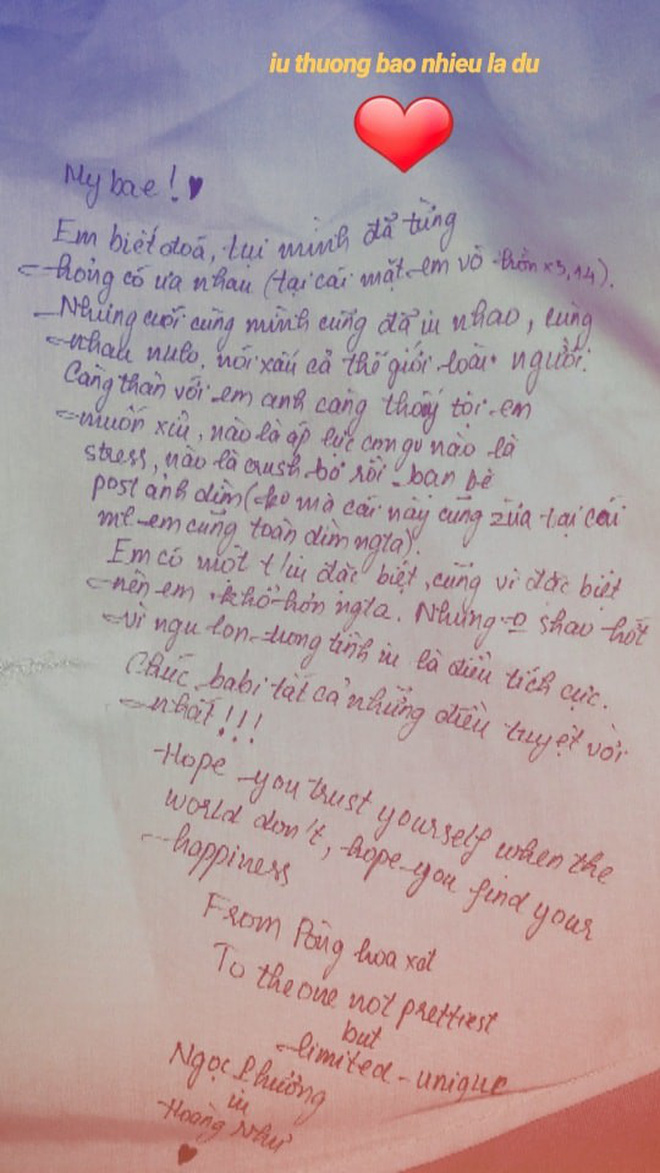 iu thuong bao nhieu la du
My bae! ♥
Em biết đoá, tụi mình đã từng
hỏng có ưa nhau (tại cái mặt em vô hồn x3,14).
Nhưng cuối cùng mình cũng đã iu nhao, cùng
nhau nuto, nói xấu cả thế giới loài người.
Càng thân với em anh càng thấy tội em
muốn xỉu, nào là áp lực nào là
stress, nào là crush bơ rồi bạn bè
post ảnh dìm (ko mà cái này cũng zừa tại cái
mt em cũng toàn dìm ngta).
Em có một t/iu đặc biệt, cũng vì đặc biệt
nên em khổ hơn ngta. Nhưng shao hớt
vì ngu lon tong tình iu là điều tích cực.
Chúc babi tất cả những điều tuyệt vời
nhất!!!
Hope you trust yourself when the
world don't, hope you find your
happiness
From hoa xơt
To the one not prettiest
but
limited - unique
Ngọc Phường
iu
Hoàng Như
♥